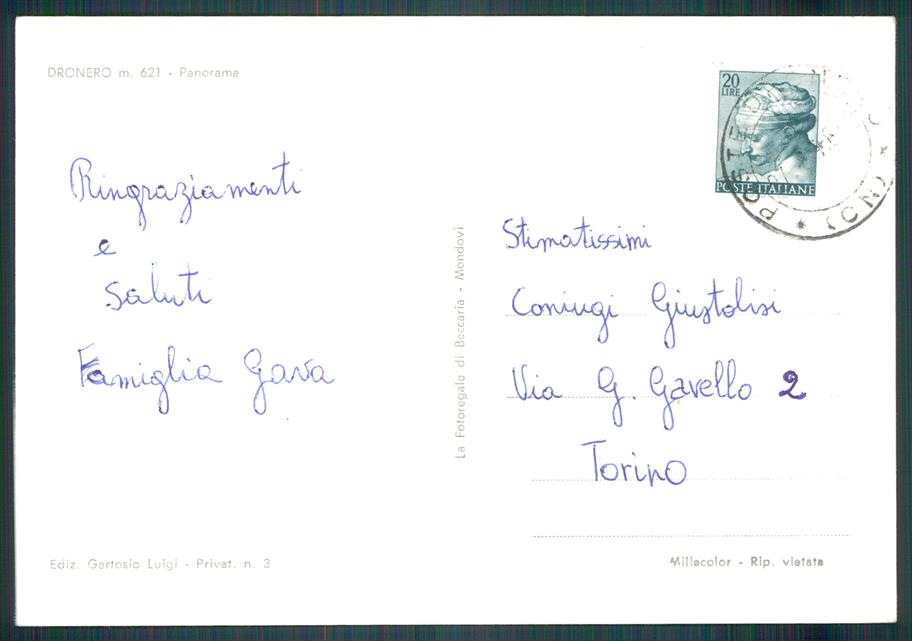 DRONERO m. 621 - Panorama
20
LIRE
POSTE ITALIANE
POSTE
(CN)
Ringraziamenti
e
Saluti
Famiglia Gava
La Fotoregale di Beccaria - Mondovì
Stimatissimi
Coniugi Giustolisi
Via G. Gavello 2
Torino
Ediz. Gertosio Luigi - Privat. n. 3
Millecolor - Rip. vietata